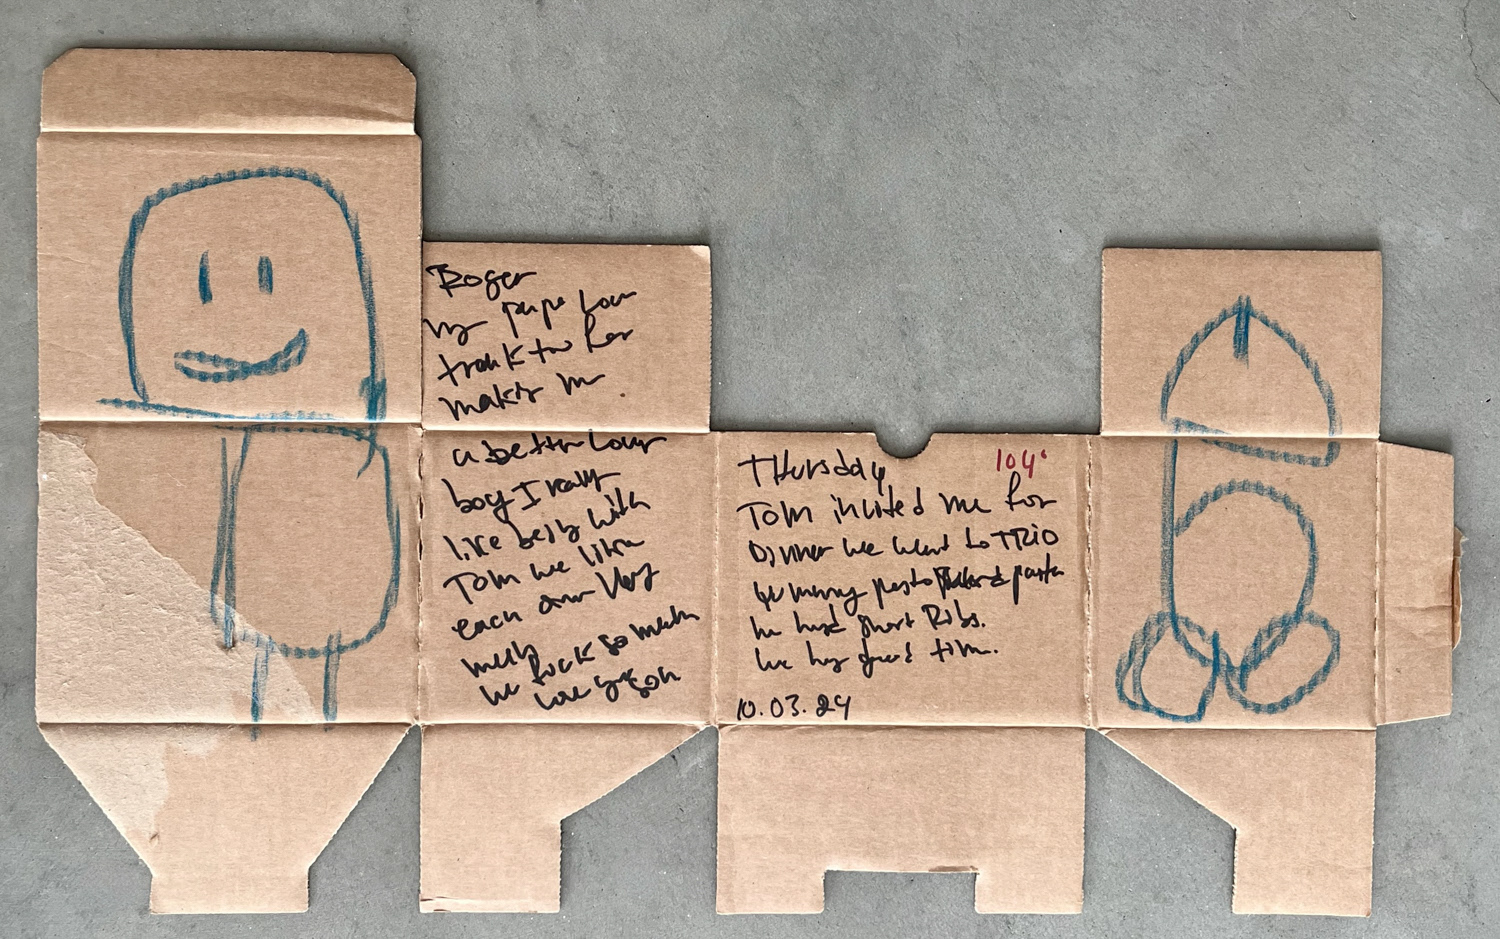 Roger
my papa bear
thank for
making me
a better lover
boy I really
like being with
Tom we like
each other very
much
we fuck so much
love you son
Thursday
104°
Tom invited me for
Dinner we went to TRIO
yummy pesto pasta
he had short Ribs.
we had great time.
10.03.24